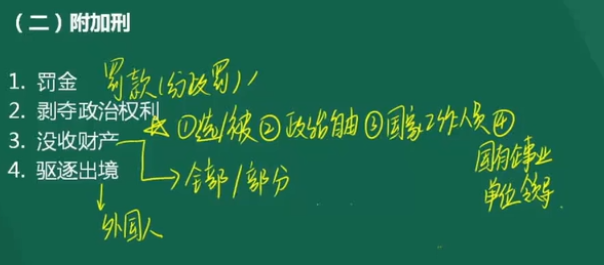 （二）附加刑
1. 罚金 罚款(行政罚)
2. 剥夺政治权利
①选/被②政治自由③国家工作人员④
国有企事业
单位领导
3. 没收财产
全部/部分
4. 驱逐出境
外国人